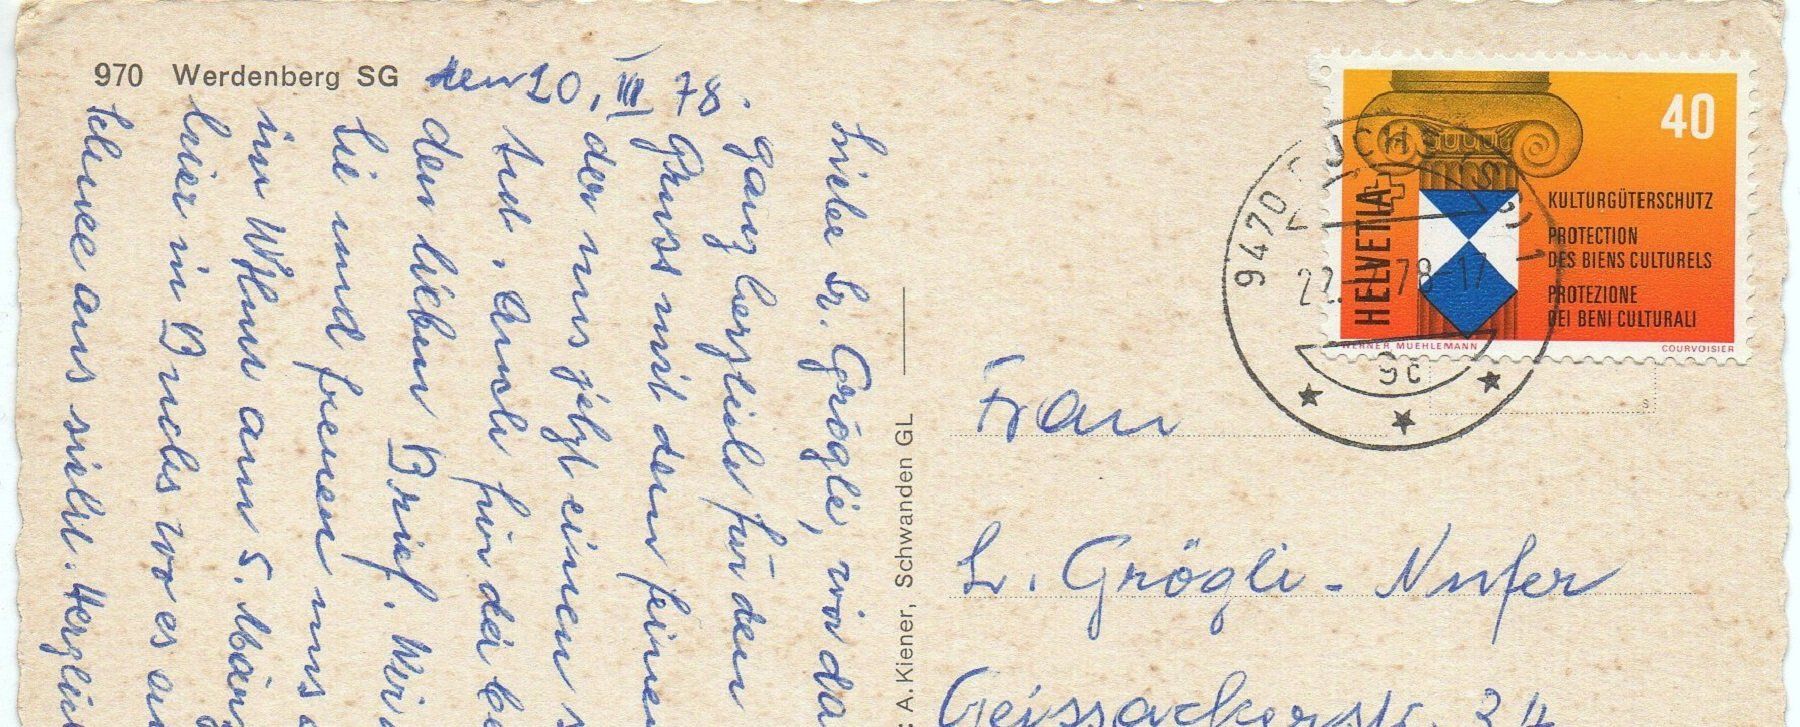 970 Werdenberg SG
den 20. III 78.
Grögli, wir da
ganz herzlich für den
Gruss mit dem feinen
der uns jetzt einen s
tut. Auch für die be
den lieben Brief. Wir
Sie und freuen uns
im am 5. März
hier in Buchs wo es
Schnee aus sieht. Herzlic
A. Kiener, Schwanden GL
HELVETIA
40
KULTURGÜTERSCHUTZ
PROTECTION
DES BIENS CULTURELS
PROTEZIONE
DEI BENI CULTURALI
WERNER MUEHLEMANN
COURVOISIER
9470 BUCHS (SG) 1
78-17
9c
S
Frau
Grögli-Nufer
Geissackerstr. 34